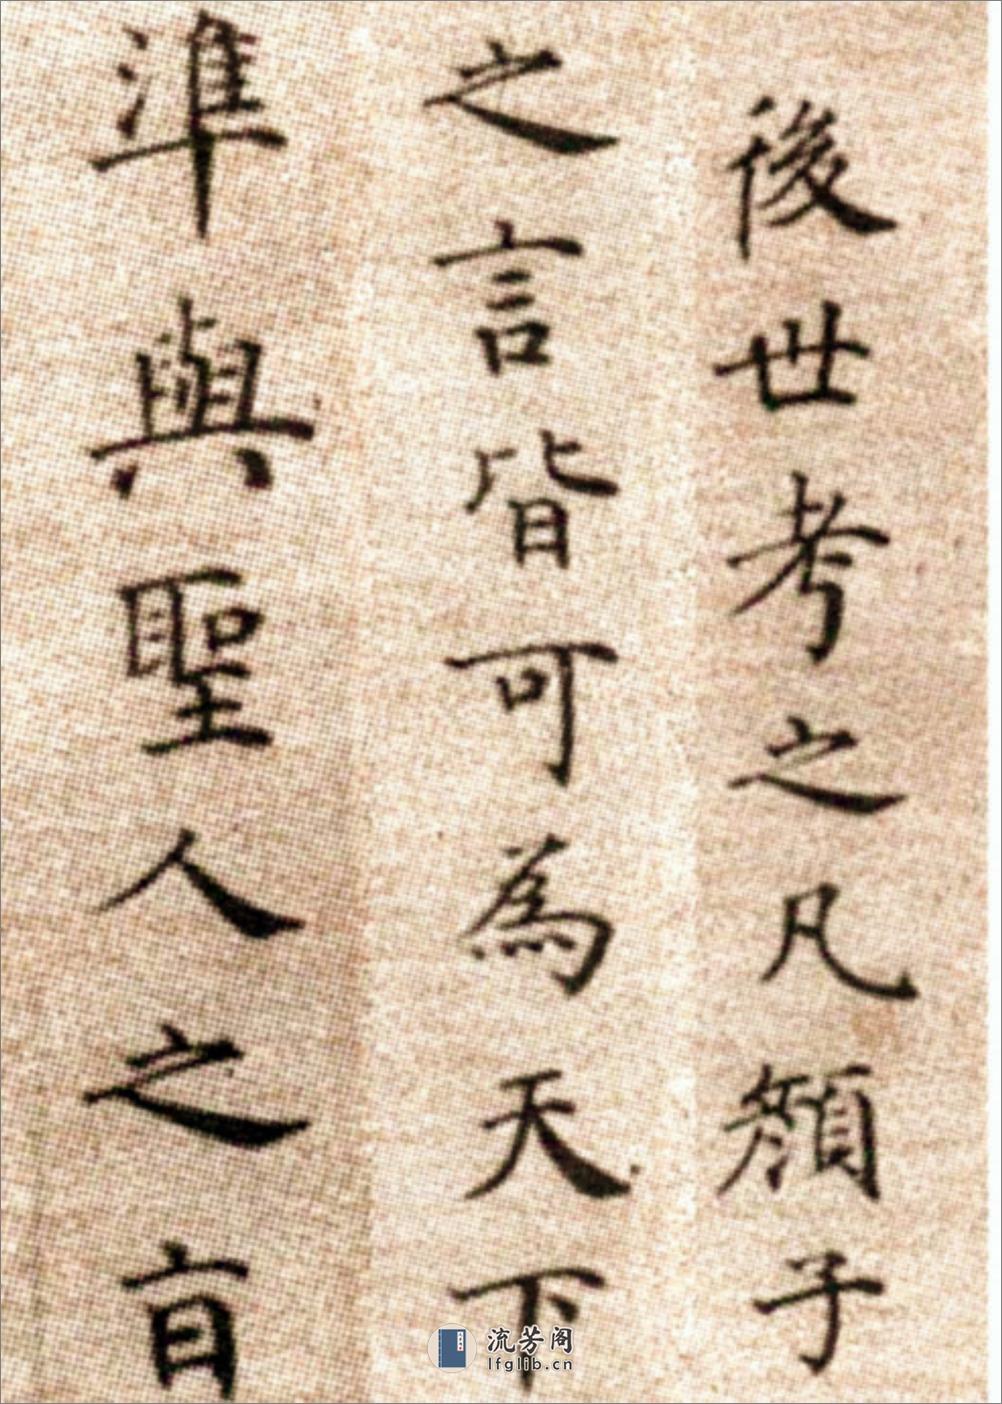 後世考之凡顔子
之言皆可為天下
準與聖人之
流芳阁
lfglib.cn